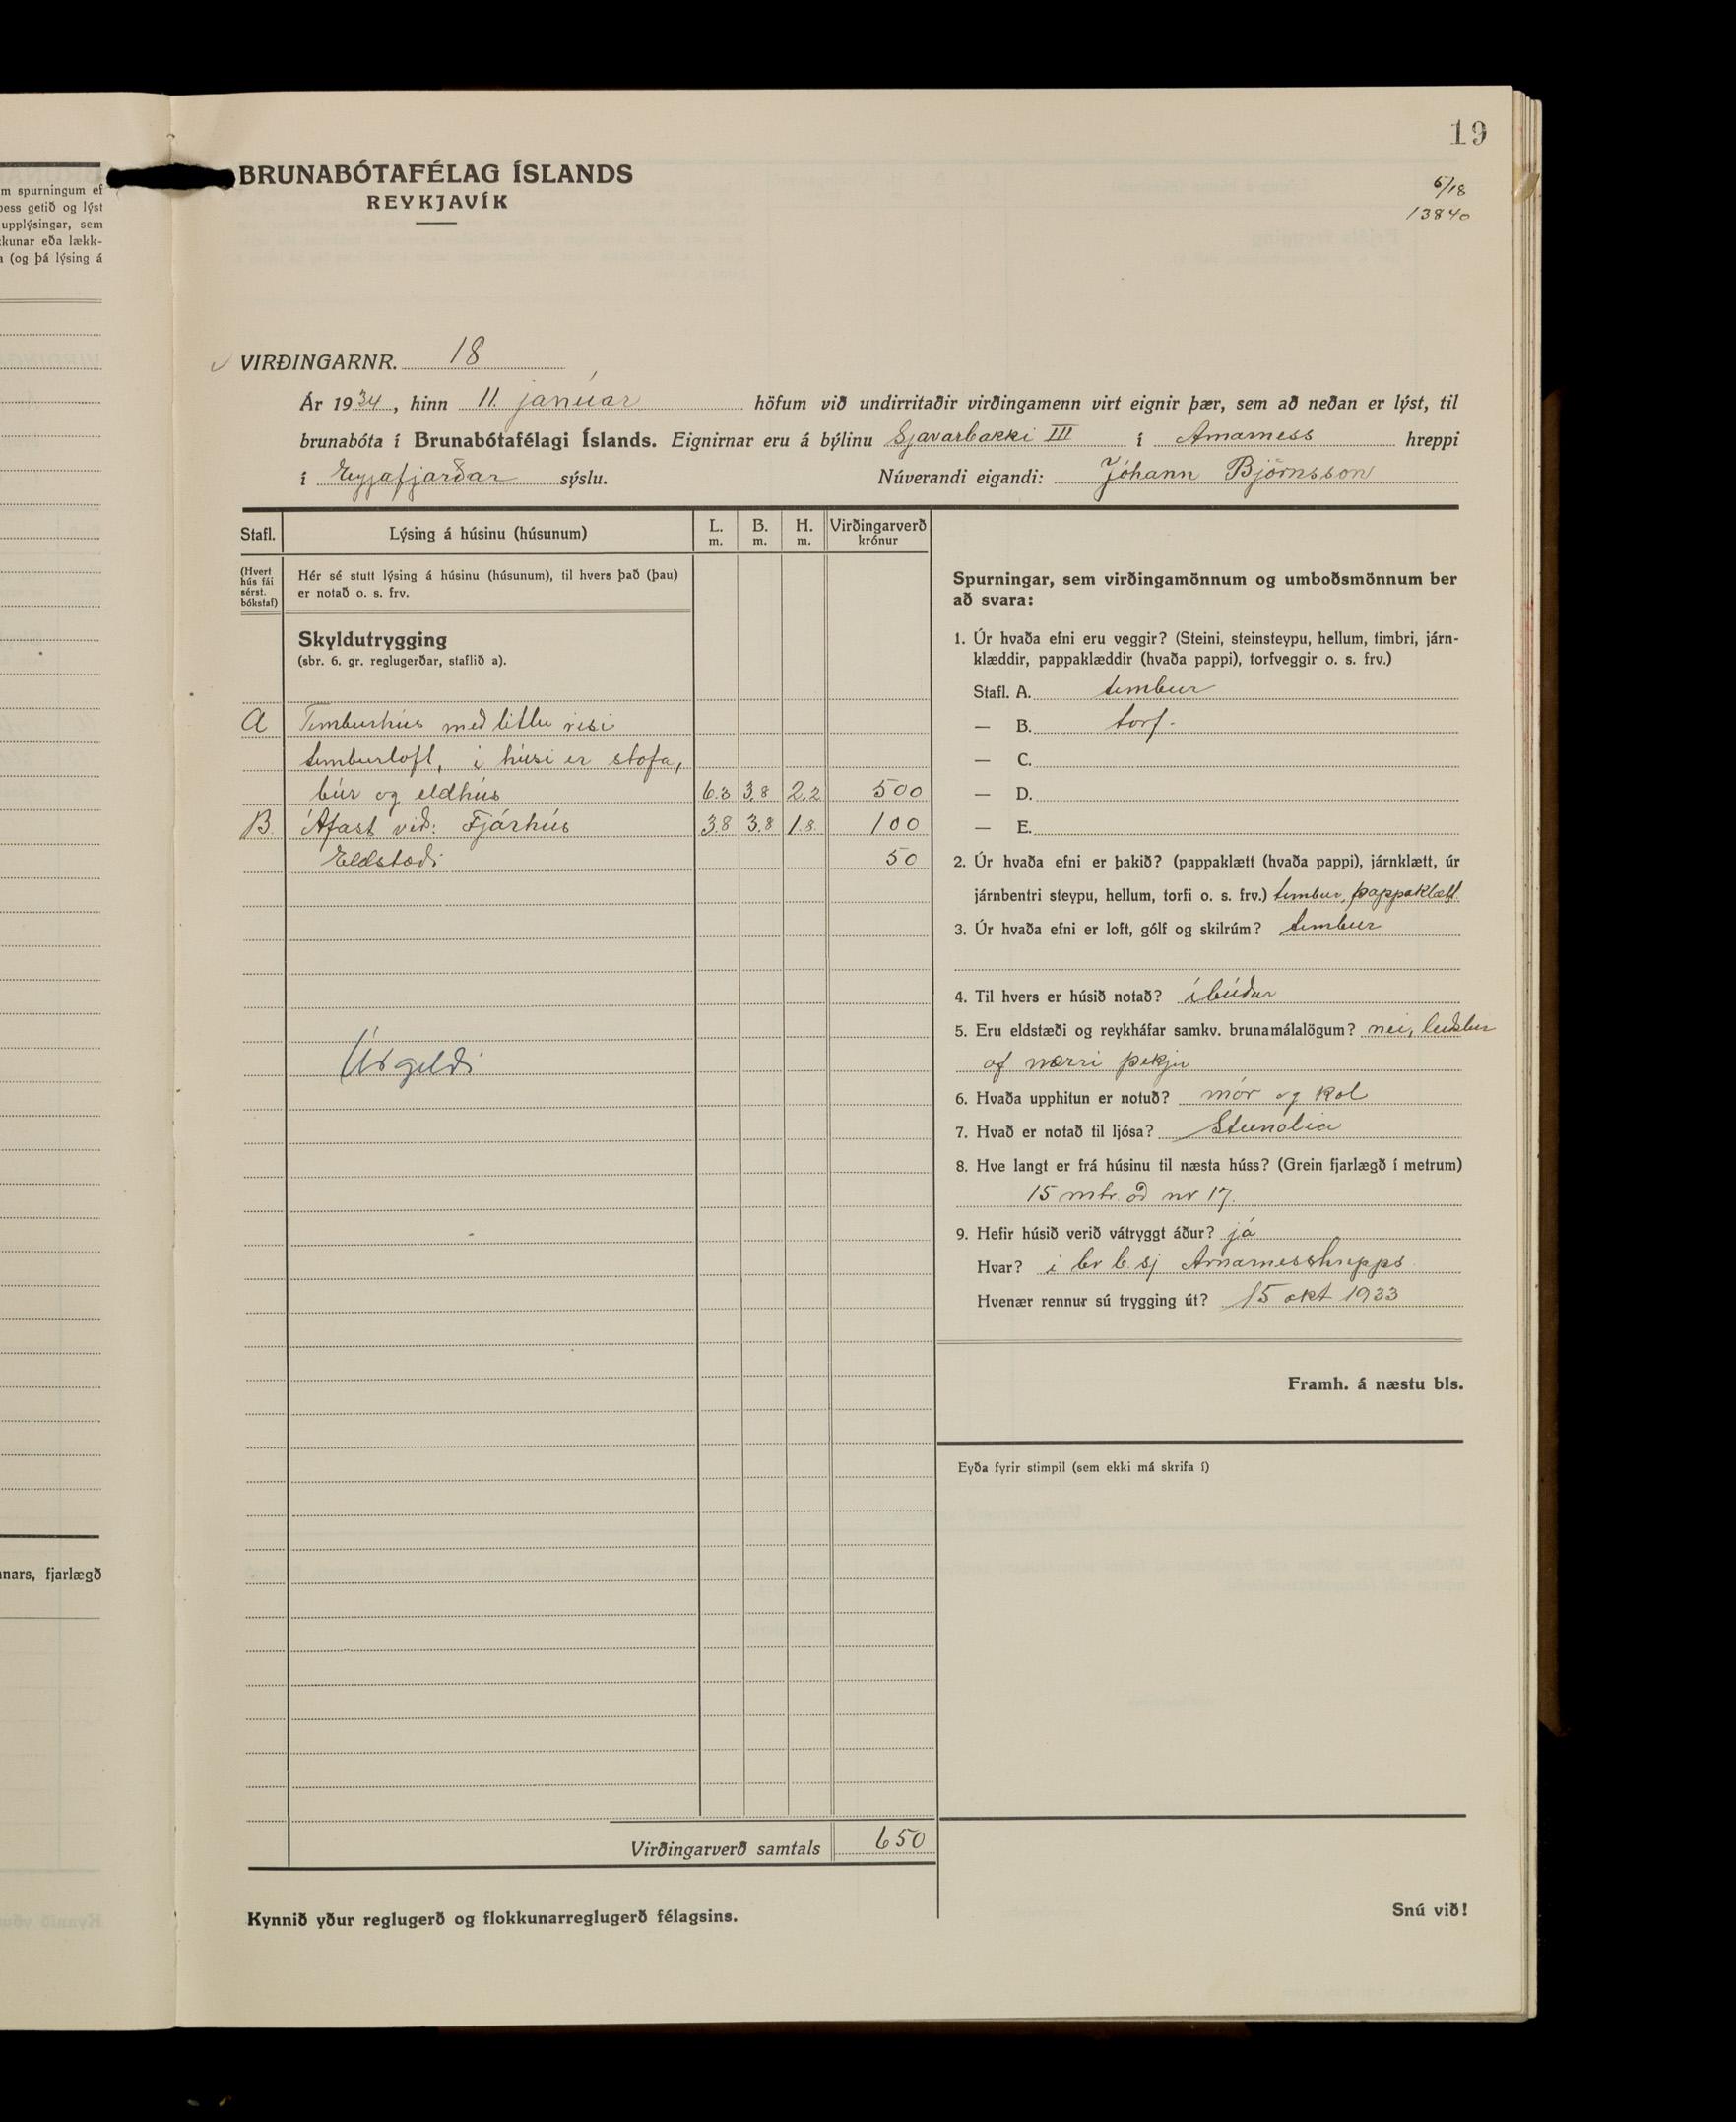 m spurningum ef
þess getið og lýst
upplýsingar, sem
kunar eða lækk-
(og þá lýsing á
nnars, fjarlægð
19
5/18
13840
BRUNABÓTAFÉLAG ÍSLANDS
REYKJAVÍK
VIRÐINGARNR. 18
Ár 1934, hinn 11. janúar höfum við undirritaðir virðingamenn virt eignir þær, sem að neðan er lýst, til
brunabóta í Brunabótafélagi Íslands. Eignirnar eru á býlinu Sjávarbakki III í Arnarness hreppi
í Eyjafjarðar sýslu. Núverandi eigandi: Jóhann Björnsson
Stafl. Lýsing á húsinu (húsunum) L. m. B. m. H. m. Virðingarverð krónur
(Hvert hús fái sérst. bókstaf)
Hér sé stutt lýsing á húsinu (húsunum), til hvers það (þau)
er notað o. s. frv.
Skyldutrygging
(sbr. 6. gr. reglugerðar, staflið a).
A Timburhús með litlu risi
timburloft, í húsi er stofa,
búr og eldhús 6.3 3.8 2.2 500
B. Áfast við: Fjárhús 3.8 3.8 1.8 100
Eldstæði 50
Úr gildi
Virðingarverð samtals 650
Kynnið yður reglugerð og flokkunarreglugerð félagsins.
Spurningar, sem virðingamönnum og umboðsmönnum ber
að svara:
1. Úr hvaða efni eru veggir? (Steini, steinsteypu, hellum, timbri, járn-
klæddir, pappaklæddir (hvaða pappi), torfveggir o. s. frv.)
Stafl. A. timbur
— B. torf.
— C.
— D.
— E.
2. Úr hvaða efni er þakið? (pappaklætt (hvaða pappi), járnklætt, úr
járnbentri steypu, hellum, torfi o. s. frv.) timbur, pappaklætt.
3. Úr hvaða efni er loft, gólf og skilrúm? timbur
4. Til hvers er húsið notað? íbúðar
5. Eru eldstæði og reykháfar samkv. brunamálalögum? nei,
of nærri þekju
6. Hvaða upphitun er notuð? mór og kol
7. Hvað er notað til ljósa? Steinolía
8. Hve langt er frá húsinu til næsta húss? (Grein fjarlægð í metrum)
15 mtr. að nr 17.
9. Hefir húsið verið vátryggt áður? já
Hvar? í br b. sj Arnarneshrepps
Hvenær rennur sú trygging út? 15 okt 1933
Framh. á næstu bls.
Eyða fyrir stimpil (sem ekki má skrifa í)
Snú við!